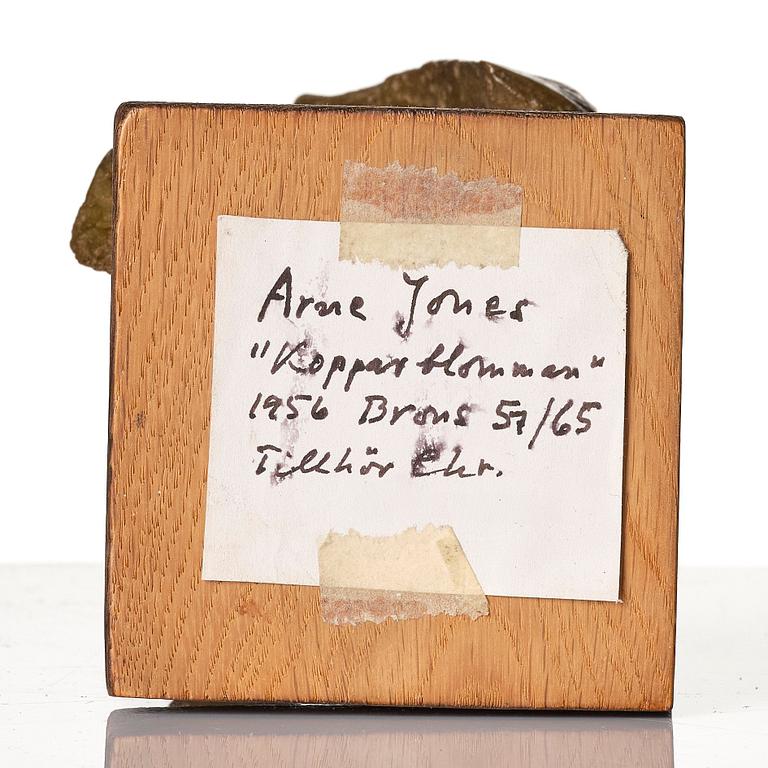 Arne Jones
"Kopparblomman"
1956 Brons 57/65
Tillhör Chr.